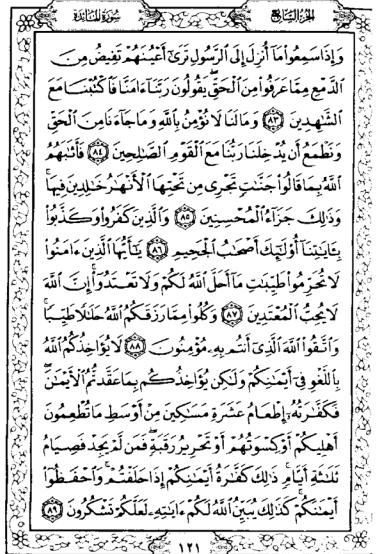 الجزء السابع
سورة المائدة
وَإِذَا سَمِعُوا۟ مَآ أُنزِلَ إِلَى ٱلرَّسُولِ تَرَىٰٓ أَعْيُنَهُمْ تَفِيضُ مِنَ
ٱلدَّمْعِ مِمَّا عَرَفُوا۟ مِنَ ٱلْحَقِّ يَقُولُونَ رَبَّنَآ ءَامَنَّا فَٱكْتُبْنَا مَعَ
ٱلشَّٰهِدِينَ ٨٣ وَمَا لَنَا لَا نُؤْمِنُ بِٱللَّهِ وَمَا جَآءَنَا مِنَ ٱلْحَقِّ
وَنَطْمَعُ أَن يُدْخِلَنَا رَبُّنَا مَعَ ٱلْقَوْمِ ٱلصَّٰلِحِينَ ٨٤ فَأَثَٰبَهُمُ
ٱللَّهُ بِمَا قَالُوا۟ جَنَّٰتٍ تَجْرِى مِن تَحْتِهَا ٱلْأَنْهَٰرُ خَٰلِدِينَ فِيهَا ۚ
وَذَٰلِكَ جَزَآءُ ٱلْمُحْسِنِينَ ٨٥ وَٱلَّذِينَ كَفَرُوا۟ وَكَذَّبُوا۟
بِـَٔايَٰتِنَآ أُو۟لَٰٓئِكَ أَصْحَٰبُ ٱلْجَحِيمِ ٨٦ يَٰٓأَيُّهَا ٱلَّذِينَ ءَامَنُوا۟
لَا تُحَرِّمُوا۟ طَيِّبَٰتِ مَآ أَحَلَّ ٱللَّهُ لَكُمْ وَلَا تَعْتَدُوٓا۟ ۚ إِنَّ ٱللَّهَ
لَا يُحِبُّ ٱلْمُعْتَدِينَ ٨٧ وَكُلُوا۟ مِمَّا رَزَقَكُمُ ٱللَّهُ حَلَٰلًا طَيِّبًا ۚ
وَٱتَّقُوا۟ ٱللَّهَ ٱلَّذِىٓ أَنتُم بِهِۦ مُؤْمِنُونَ ٨٨ لَا يُؤَاخِذُكُمُ ٱللَّهُ
بِٱللَّغْوِ فِىٓ أَيْمَٰنِكُمْ وَلَٰكِن يُؤَاخِذُكُم بِمَا عَقَّدتُّمُ ٱلْأَيْمَٰنَ ۖ
فَكَفَّٰرَتُهُۥٓ إِطْعَامُ عَشَرَةِ مَسَٰكِينَ مِنْ أَوْسَطِ مَا تُطْعِمُونَ
أَهْلِيكُمْ أَوْ كِسْوَتُهُمْ أَوْ تَحْرِيرُ رَقَبَةٍ ۖ فَمَن لَّمْ يَجِدْ فَصِيَامُ
ثَلَٰثَةِ أَيَّامٍ ۚ ذَٰلِكَ كَفَّٰرَةُ أَيْمَٰنِكُمْ إِذَا حَلَفْتُمْ ۚ وَٱحْفَظُوٓا۟
أَيْمَٰنَكُمْ ۚ كَذَٰلِكَ يُبَيِّنُ ٱللَّهُ لَكُمْ ءَايَٰتِهِۦ لَعَلَّكُمْ تَشْكُرُونَ ٨٩
١٢١